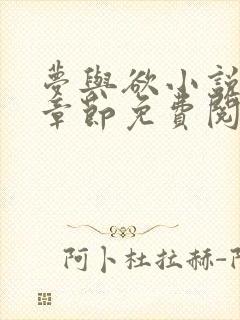 夢與欲小說
章節免費閱
阿卜杜拉赫-阿